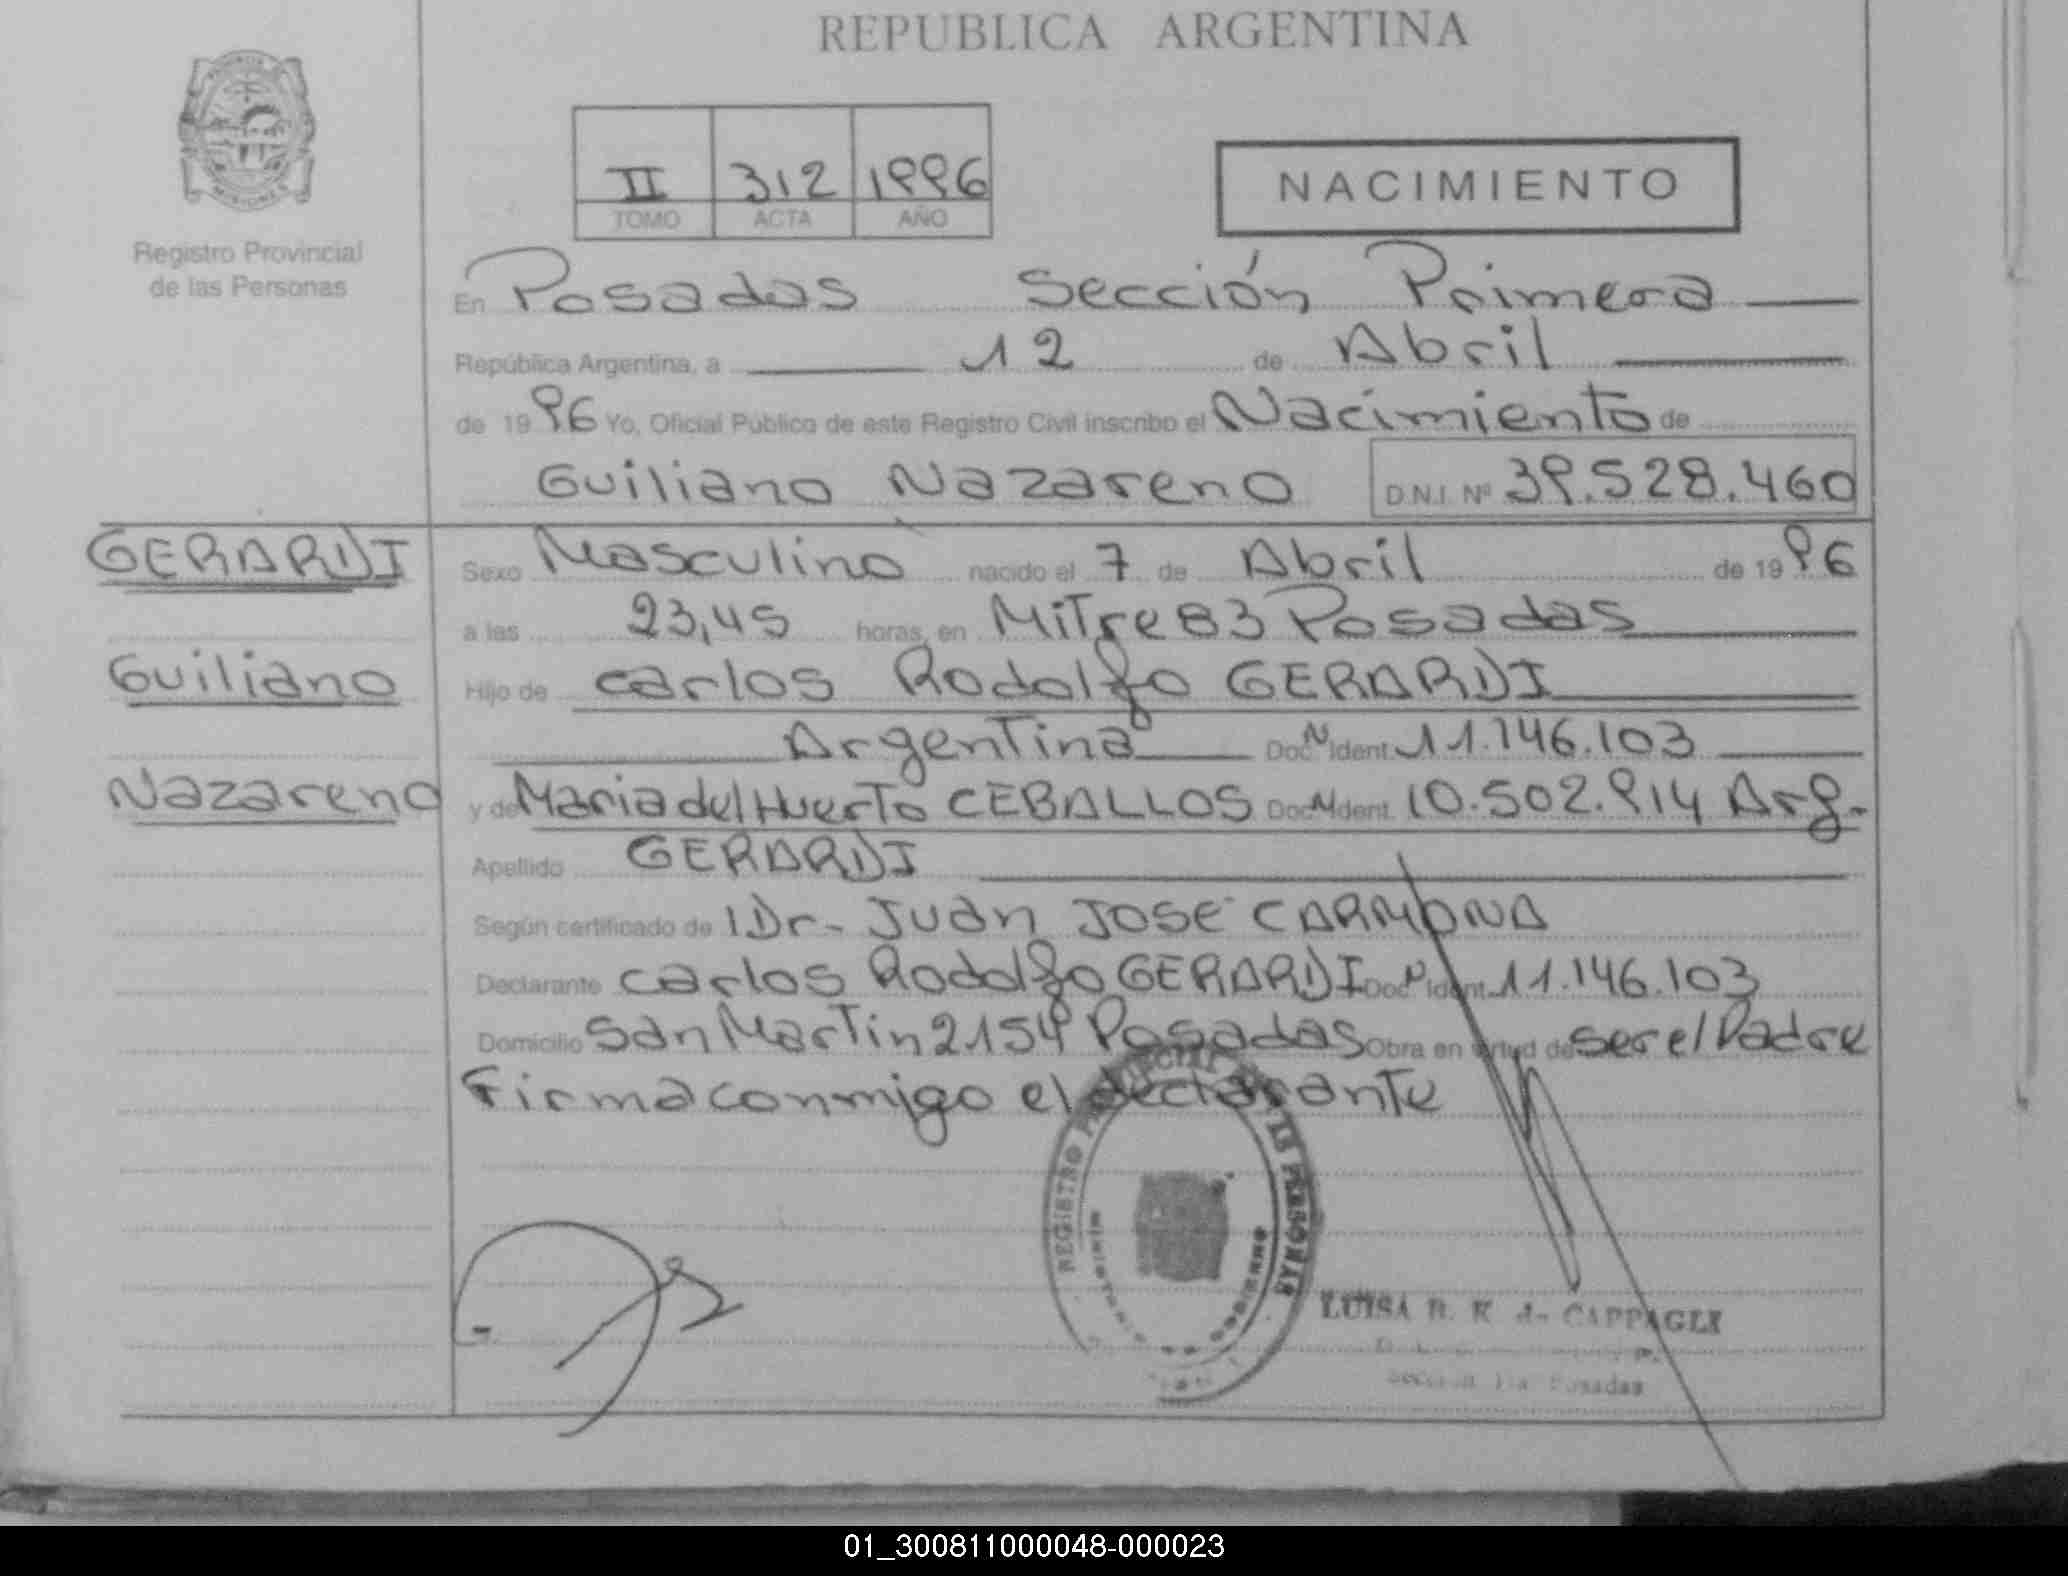 REPUBLICA ARGENTINA
PROVINCIA
MISIONES
Registro Provincial
de las Personas
II 312 1996
TOMO ACTA AÑO
NACIMIENTO
En Posadas Sección Primera
República Argentina, a 12 de Abril
de 1996 Yo, Oficial Público de este Registro Civil inscribo el Nacimiento de
Guiliano Nazareno D.N.I. Nº 39.528.460
GERARDI
Guiliano
Nazareno
Sexo Masculino nacido el 7 de Abril de 1996
a las 23,45 horas, en Mitre 83 Posadas
Hijo de Carlos Rodolfo GERARDI
Argentina Doc. N Ident. 11.146.103
y de Maria del Huerto CEBALLOS Doc. N Ident. 10.502.914 Arg.
Apellido GERARDI
Según certificado de Dr. Juan José CARMONA
Declarante Carlos Rodolfo GERARDI Doc. N Ident. 11.146.103
Domicilio San Martin 2154 Posadas Obra en virtud de ser el Padre
Firma conmigo el declarante
REGISTRO DE LAS PERSONAS
LUISA B. K. de CAPPAGLI
Sección 1ra Posadas
01_300811000048-000023